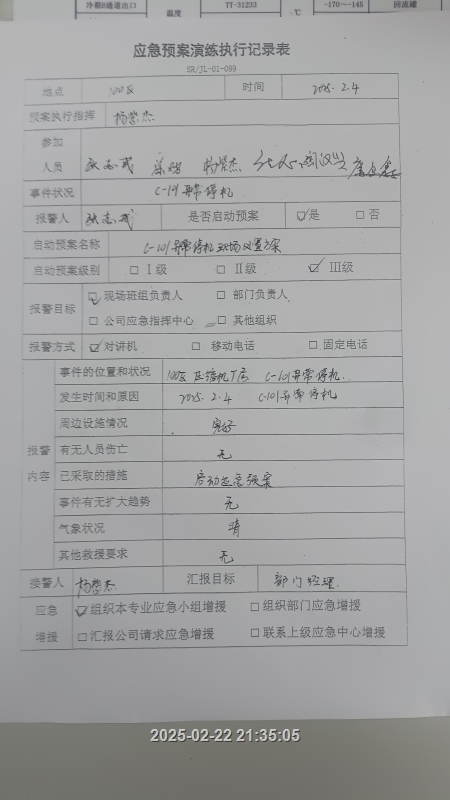 冷箱B通道出口
温度
TT-31233
℃
-170~-145
回流罐
应急预案演练执行记录表
SR/JL-01-099
地点 100区 时间 2025.2.4
预案执行指挥
参加
人员
事件状况 C-101异常停机
报警人 是否启动预案 ☑是 □否
启动预案名称 C-101异常停机现场处置方案
启动预案级别 □Ⅰ级 □Ⅱ级 ☑Ⅲ级
报警目标 ☑现场班组负责人 □部门负责人
□公司应急指挥中心 □其他组织
报警方式 ☑对讲机 □移动电话 □固定电话
报警
内容
事件的位置和状况 100区压缩机厂房 C-101异常停机.
发生时间和原因 2025.2.4 C-101异常停机
周边设施情况 完好
有无人员伤亡 无
已采取的措施 启动应急预案
事件有无扩大趋势 无
气象状况 晴
其他救援要求 无
接警人 汇报目标 部门经理.
应急
增援
☑组织本专业应急小组增援 □组织部门应急增援
□汇报公司请求应急增援 □联系上级应急中心增援
2025-02-22 21:35:05